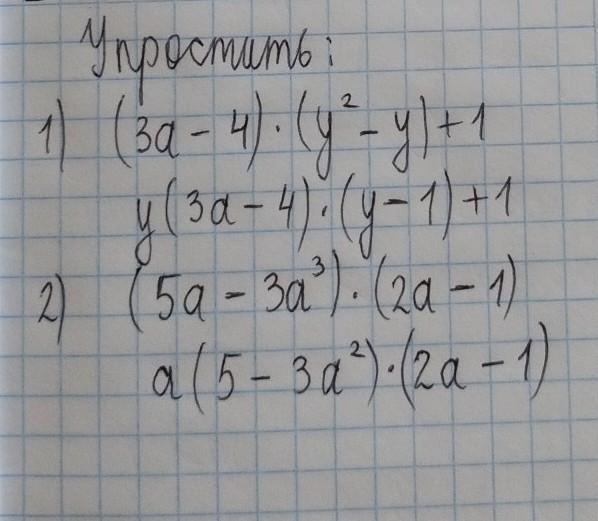 Упростить:
1) (3a - 4) · (y² - y) + 1
y(3a - 4) · (y - 1) + 1
2) (5a - 3a³) · (2a - 1)
a(5 - 3a²) · (2a - 1)